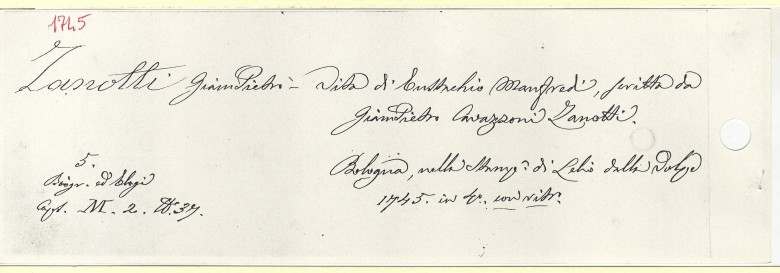 1745
Zanotti GiamPietro - Vita di Eustachio Manfredi, scritta da
GiamPietro Cavazzoni Zanotti.
Bologna, nella Stamp.ª di Lelio dalla Volpe
1745. in 4º. con ritr.
5.
Biogr. ed Elogi
Caps. M. 2. N. 37.